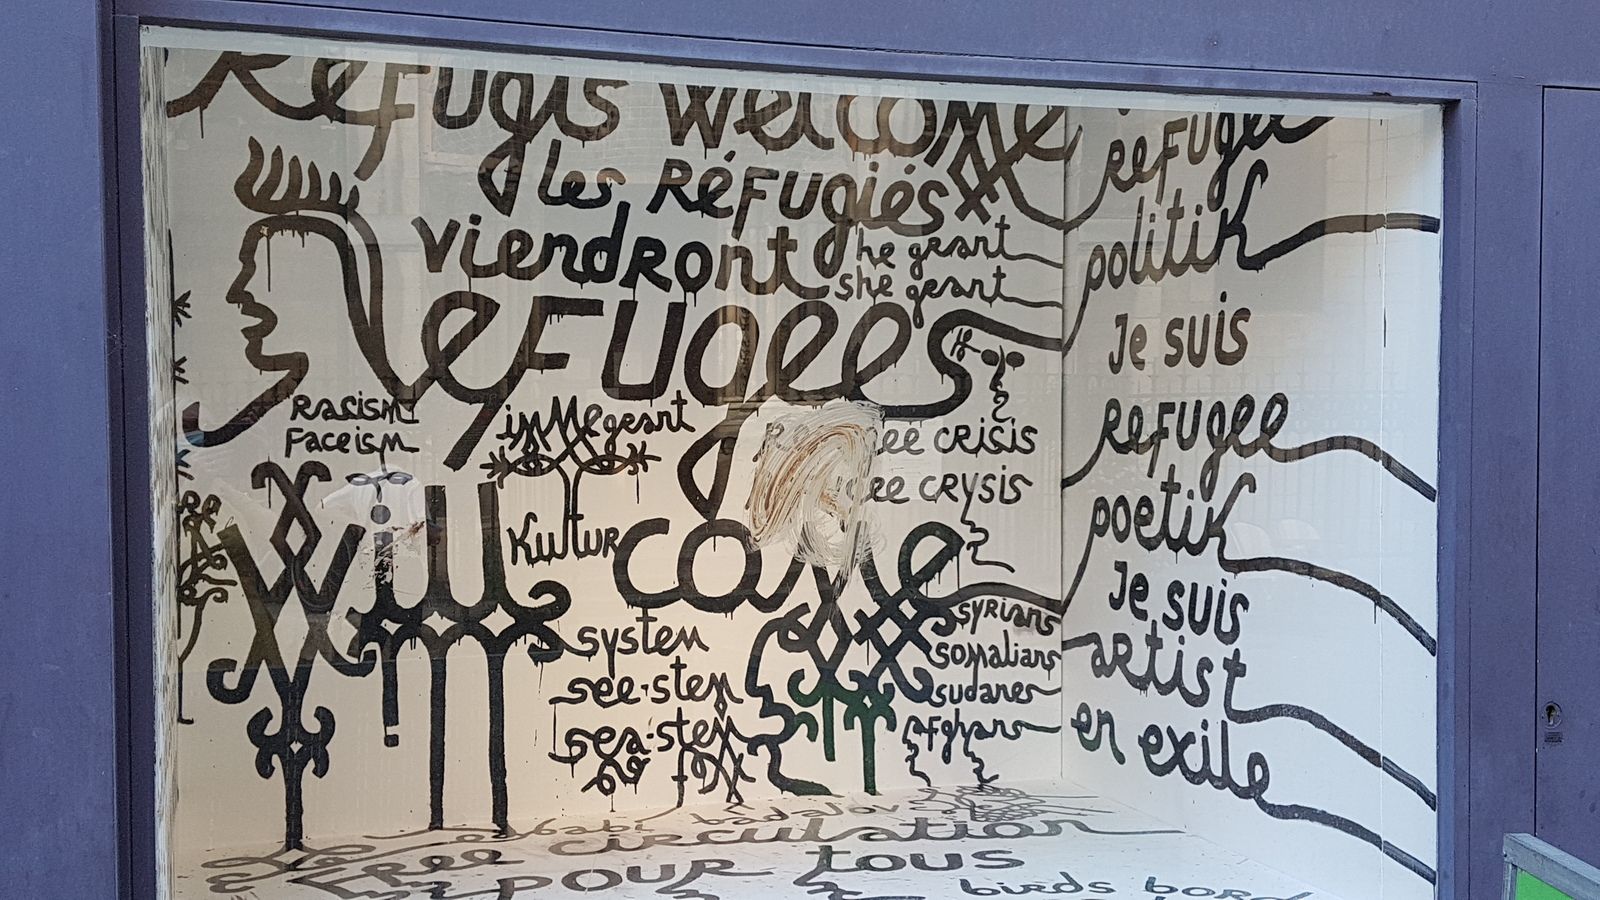 Refugis welcome
les Réfugiés
viendront
he geant
she geant
Refugees
Racism
Faceism
immegeant
ee crisis
ee crysis
Kultur
will come
system
see-stem
sea-stem
syrians
somalians
sudanes
afghans
babi badalov
free circulation
pour tous
birds bord
refugee
politik
Je suis
Refugee
poetik
Je suis
artist
en exile